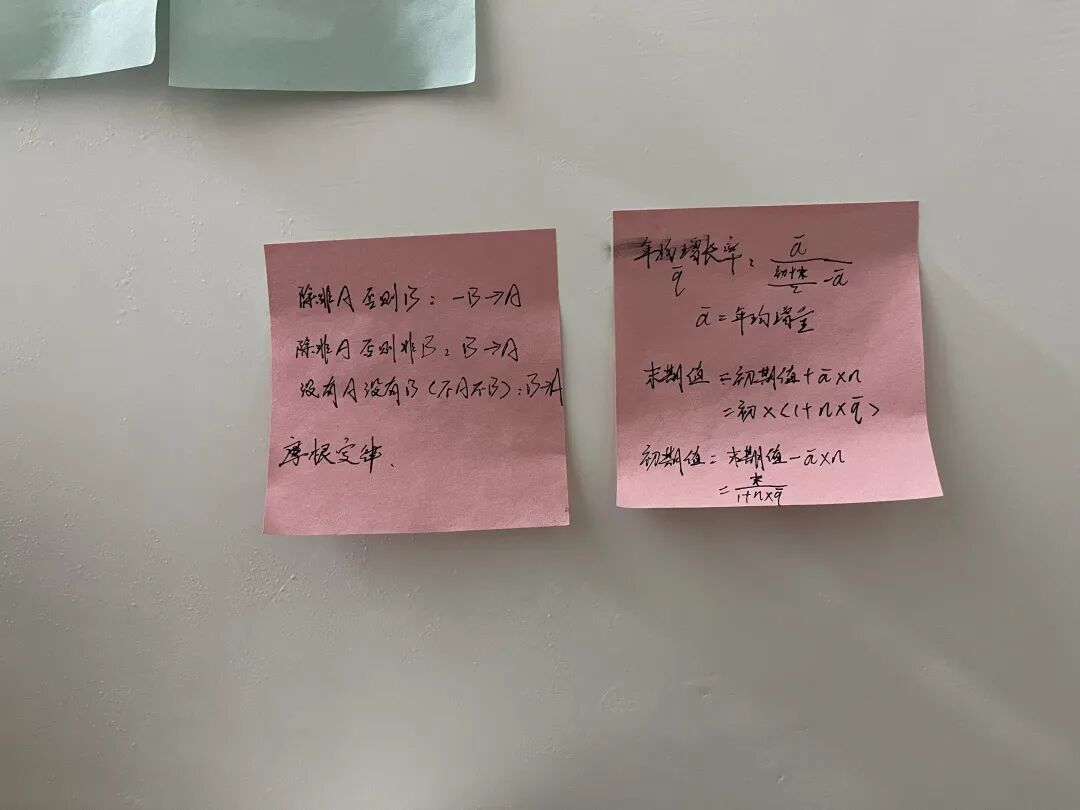 除非A否则B：-B→A
除非A否则非B：B→A
没有A没有B（不A不B）：B→A
摩根定律、
年均增长率：ā/((初+末)/2-ā)
q̄
ā=年均增量
末期值=初期值+ā×n
=初×(1+n×q̄)
初期值=末期值-ā×n
=末/(1+n×q̄)